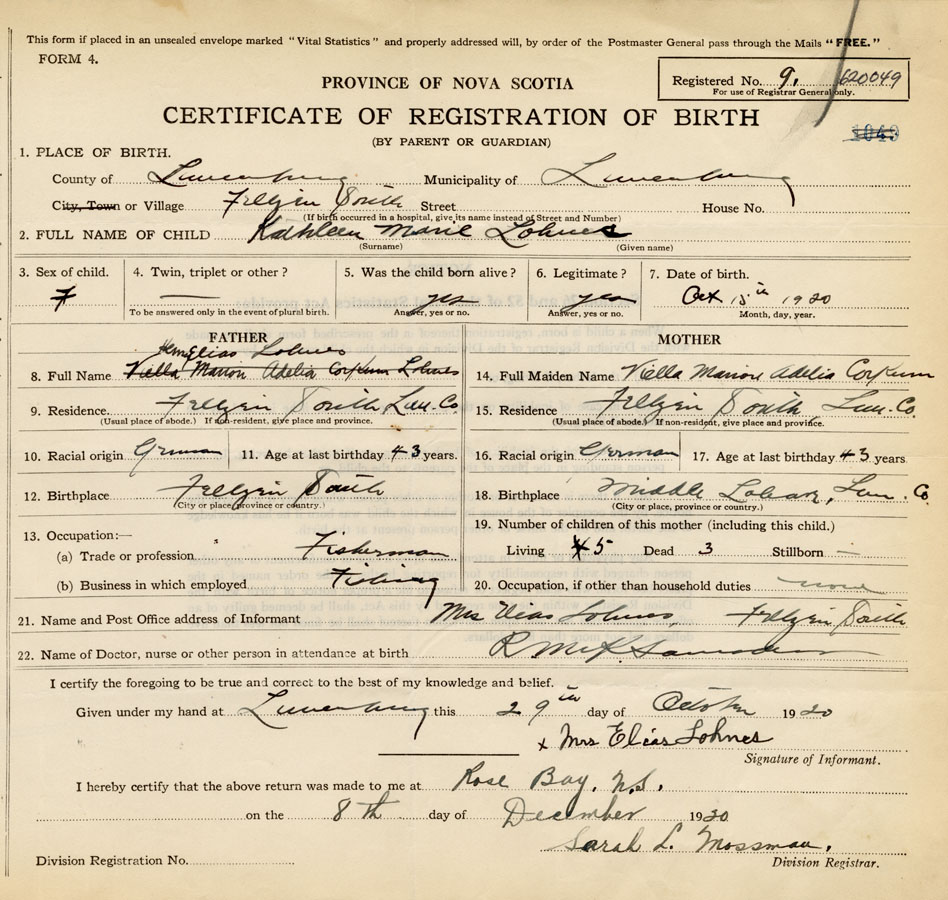 This form if placed in an unsealed envelope marked "Vital Statistics" and properly addressed will, by order of the Postmaster General pass through the Mails "FREE."
FORM 4.
Registered No. 9. 620049
For use of Registrar General only.
PROVINCE OF NOVA SCOTIA
CERTIFICATE OF REGISTRATION OF BIRTH
1043
(BY PARENT OR GUARDIAN)
1. PLACE OF BIRTH.
County of Lunenburg Municipality of Lunenburg
City, Town or Village Feltzen South Street House No.
(If birth occurred in a hospital, give its name instead of Street and Number)
2. FULL NAME OF CHILD Kathleen Marie Lohnes
(Surname) (Given name)
3. Sex of child. 4. Twin, triplet or other? 5. Was the child born alive? 6. Legitimate? 7. Date of birth.
F — yes yes Oct 15th 1920
To be answered only in the event of plural birth. Answer, yes or no. Answer, yes or no. Month, day, year.
FATHER MOTHER
Elias Lohnes
8. Full Name Viella Marion Adelia Corkum Lohnes 14. Full Maiden Name Viella Marion Adelia Corkum
9. Residence. Feltzen South Lun. Co. 15. Residence Feltzen South, Lun. Co.
(Usual place of abode.) If non-resident, give place and province. (Usual place of abode.) If non-resident, give place and province.
10. Racial origin German 11. Age at last birthday 43 years. 16. Racial origin German 17. Age at last birthday 43 years.
12. Birthplace Feltzen South 18. Birthplace Middle LaHave, Lun. Co.
(City or place, province or country.) (City or place, province or country.)
13. Occupation:— 19. Number of children of this mother (including this child.)
(a) Trade or profession Fisherman Living 5 Dead 3 Stillborn —
(b) Business in which employed Fishing 20. Occupation, if other than household duties none
21. Name and Post Office address of Informant Mrs Elias Lohnes, Feltzen South
22. Name of Doctor, nurse or other person in attendance at birth R McK Saunders
I certify the foregoing to be true and correct to the best of my knowledge and belief.
Given under my hand at Lunenburg this 29th day of October 1920
x Mrs Elias Lohnes
Signature of Informant.
I hereby certify that the above return was made to me at Rose Bay, N.S.
on the 8th day of December 1920
Sarah L. Mossman.
Division Registration No. Division Registrar.